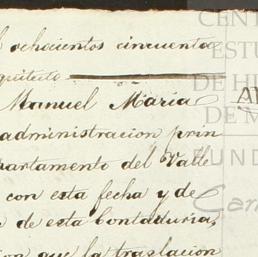 ochocientos cincuenta
Manuel Maria
administracion prin
partamento del Valle
con esta fecha y de
de esta Contaduria,
que la traslacion
CENT
ESTU
DE HI
DE M
FUND